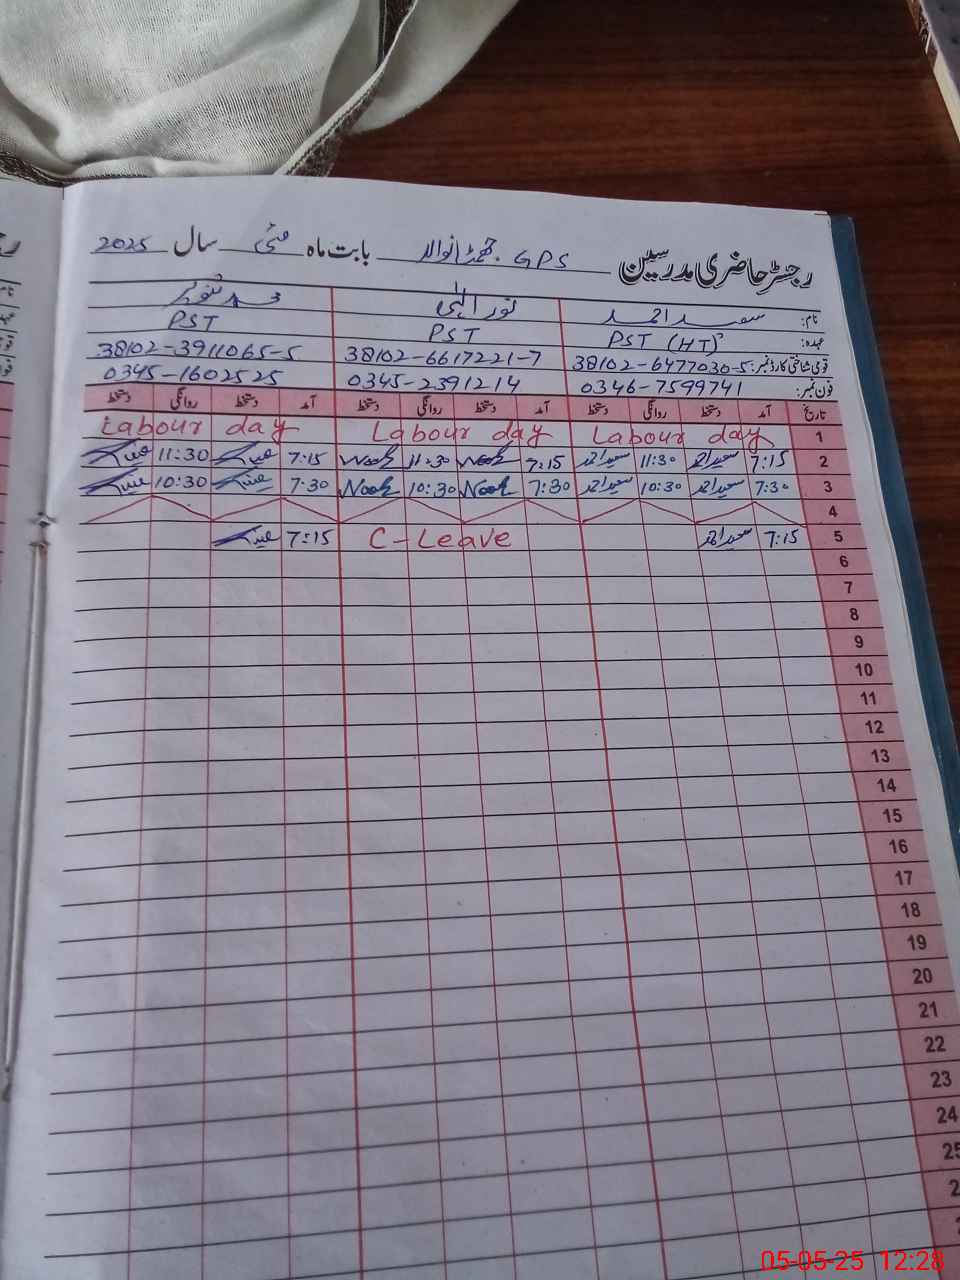 رجسٹر حاضری مدرسین GPS جھمڑانوالہ بابت ماہ مئی سال 2025
نام: سعید احمد نور الہٰی محمد تنویر
عہدہ: PST (HT) PST PST
قومی شناختی کارڈ نمبر: 38102-6477030-5 38102-6617221-7 38102-3911065-5
فون نمبر: 0346-7599741 0345-2391214 0345-1602525
تاریخ آمد دستخط روانگی دستخط آمد دستخط روانگی دستخط آمد دستخط روانگی دستخط
1 Labour day Labour day Labour day
2 7:15 سعید احمد 11:30 سعید احمد 7:15 Noor 11:30 Noor 7:15 11:30
3 7:30 سعید احمد 10:30 سعید احمد 7:30 Noor 10:30 Noor 7:30 10:30
4
5 7:15 سعید احمد C-Leave 7:15
6
7
8
9
10
11
12
13
14
15
16
17
18
19
20
21
22
23
24
25
05-05-25 12:28